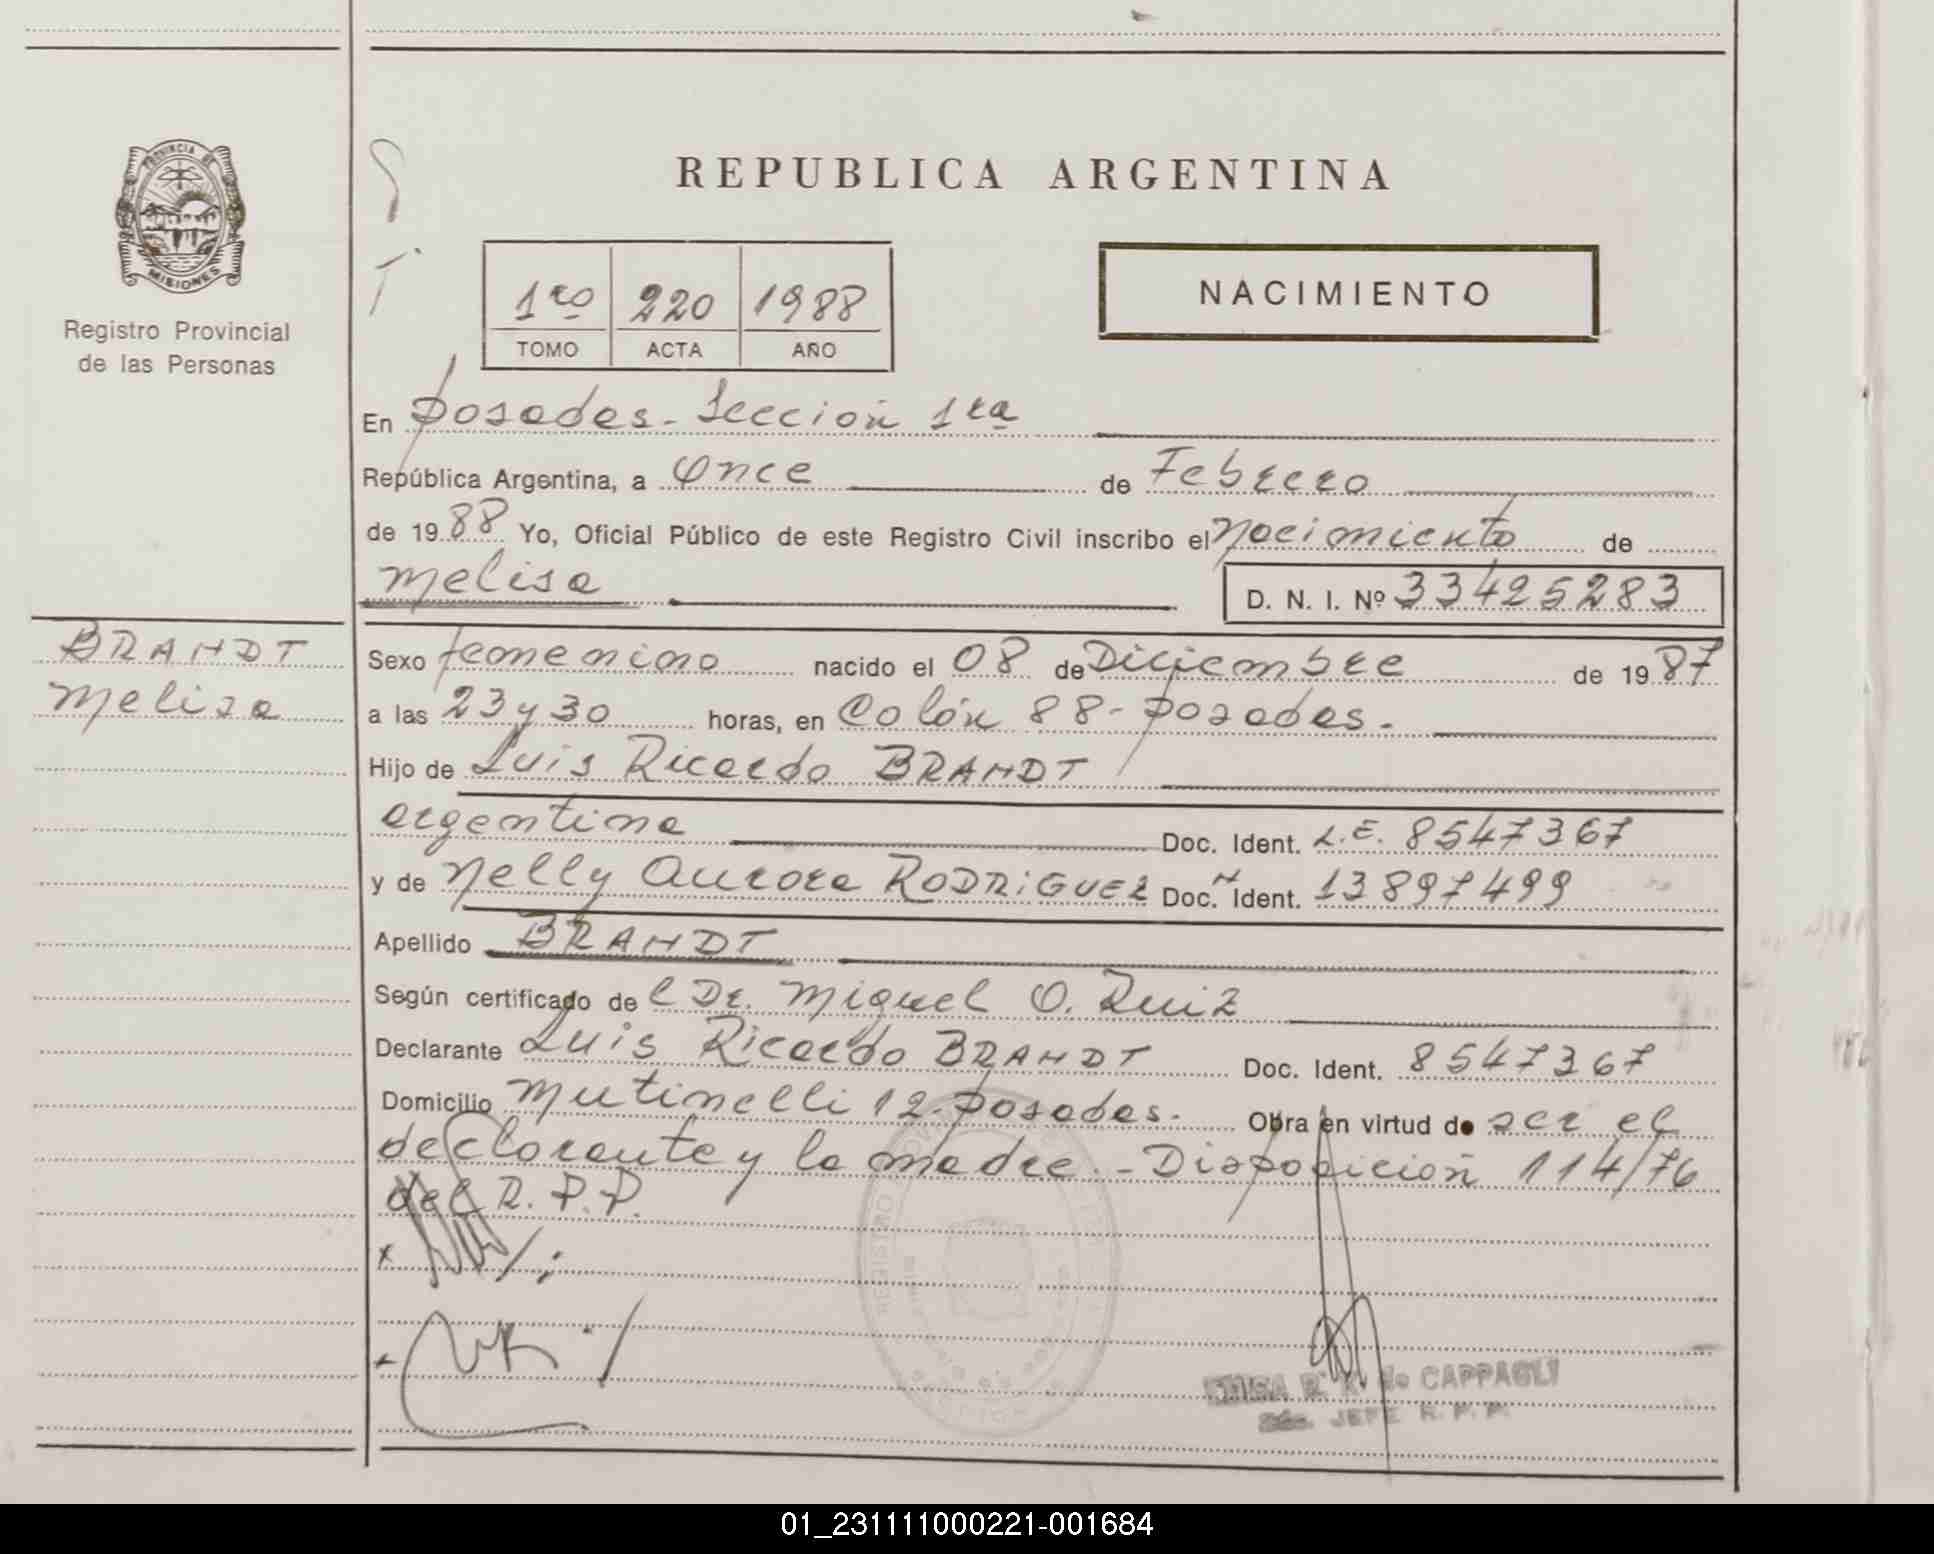 PROVINCIA DE
MISIONES
Registro Provincial
de las Personas
REPUBLICA ARGENTINA
1ro 220 1988
TOMO ACTA AÑO
NACIMIENTO
En Posadas - Sección 1ra
República Argentina, a Once de Febrero
de 1988 Yo, Oficial Público de este Registro Civil inscribo el Nacimiento de
Melisa D. N. I. Nº 33425283
BRANDT
Melisa
Sexo femenino nacido el 08 de Diciembre de 1987
a las 23 y 30 horas, en Colón 88 - Posadas.
Hijo de Luis Ricardo BRANDT
argentina Doc. Ident. L.E. 8547367
y de Nelly Aurora RODRiGUEZ Doc. Ident. 13897499
Apellido BRANDT
Según certificado del Dr. Miguel O. Ruiz
Declarante Luis Ricardo BRANDT Doc. Ident. 8547367
Domicilio Mutinelli 12 - Posadas. Obra en virtud de ser el
declarante y la madre. - Disposición 114/76
del R.P.P.
CAPPAGLI
JEFE R.P.P.
01_231111000221-001684